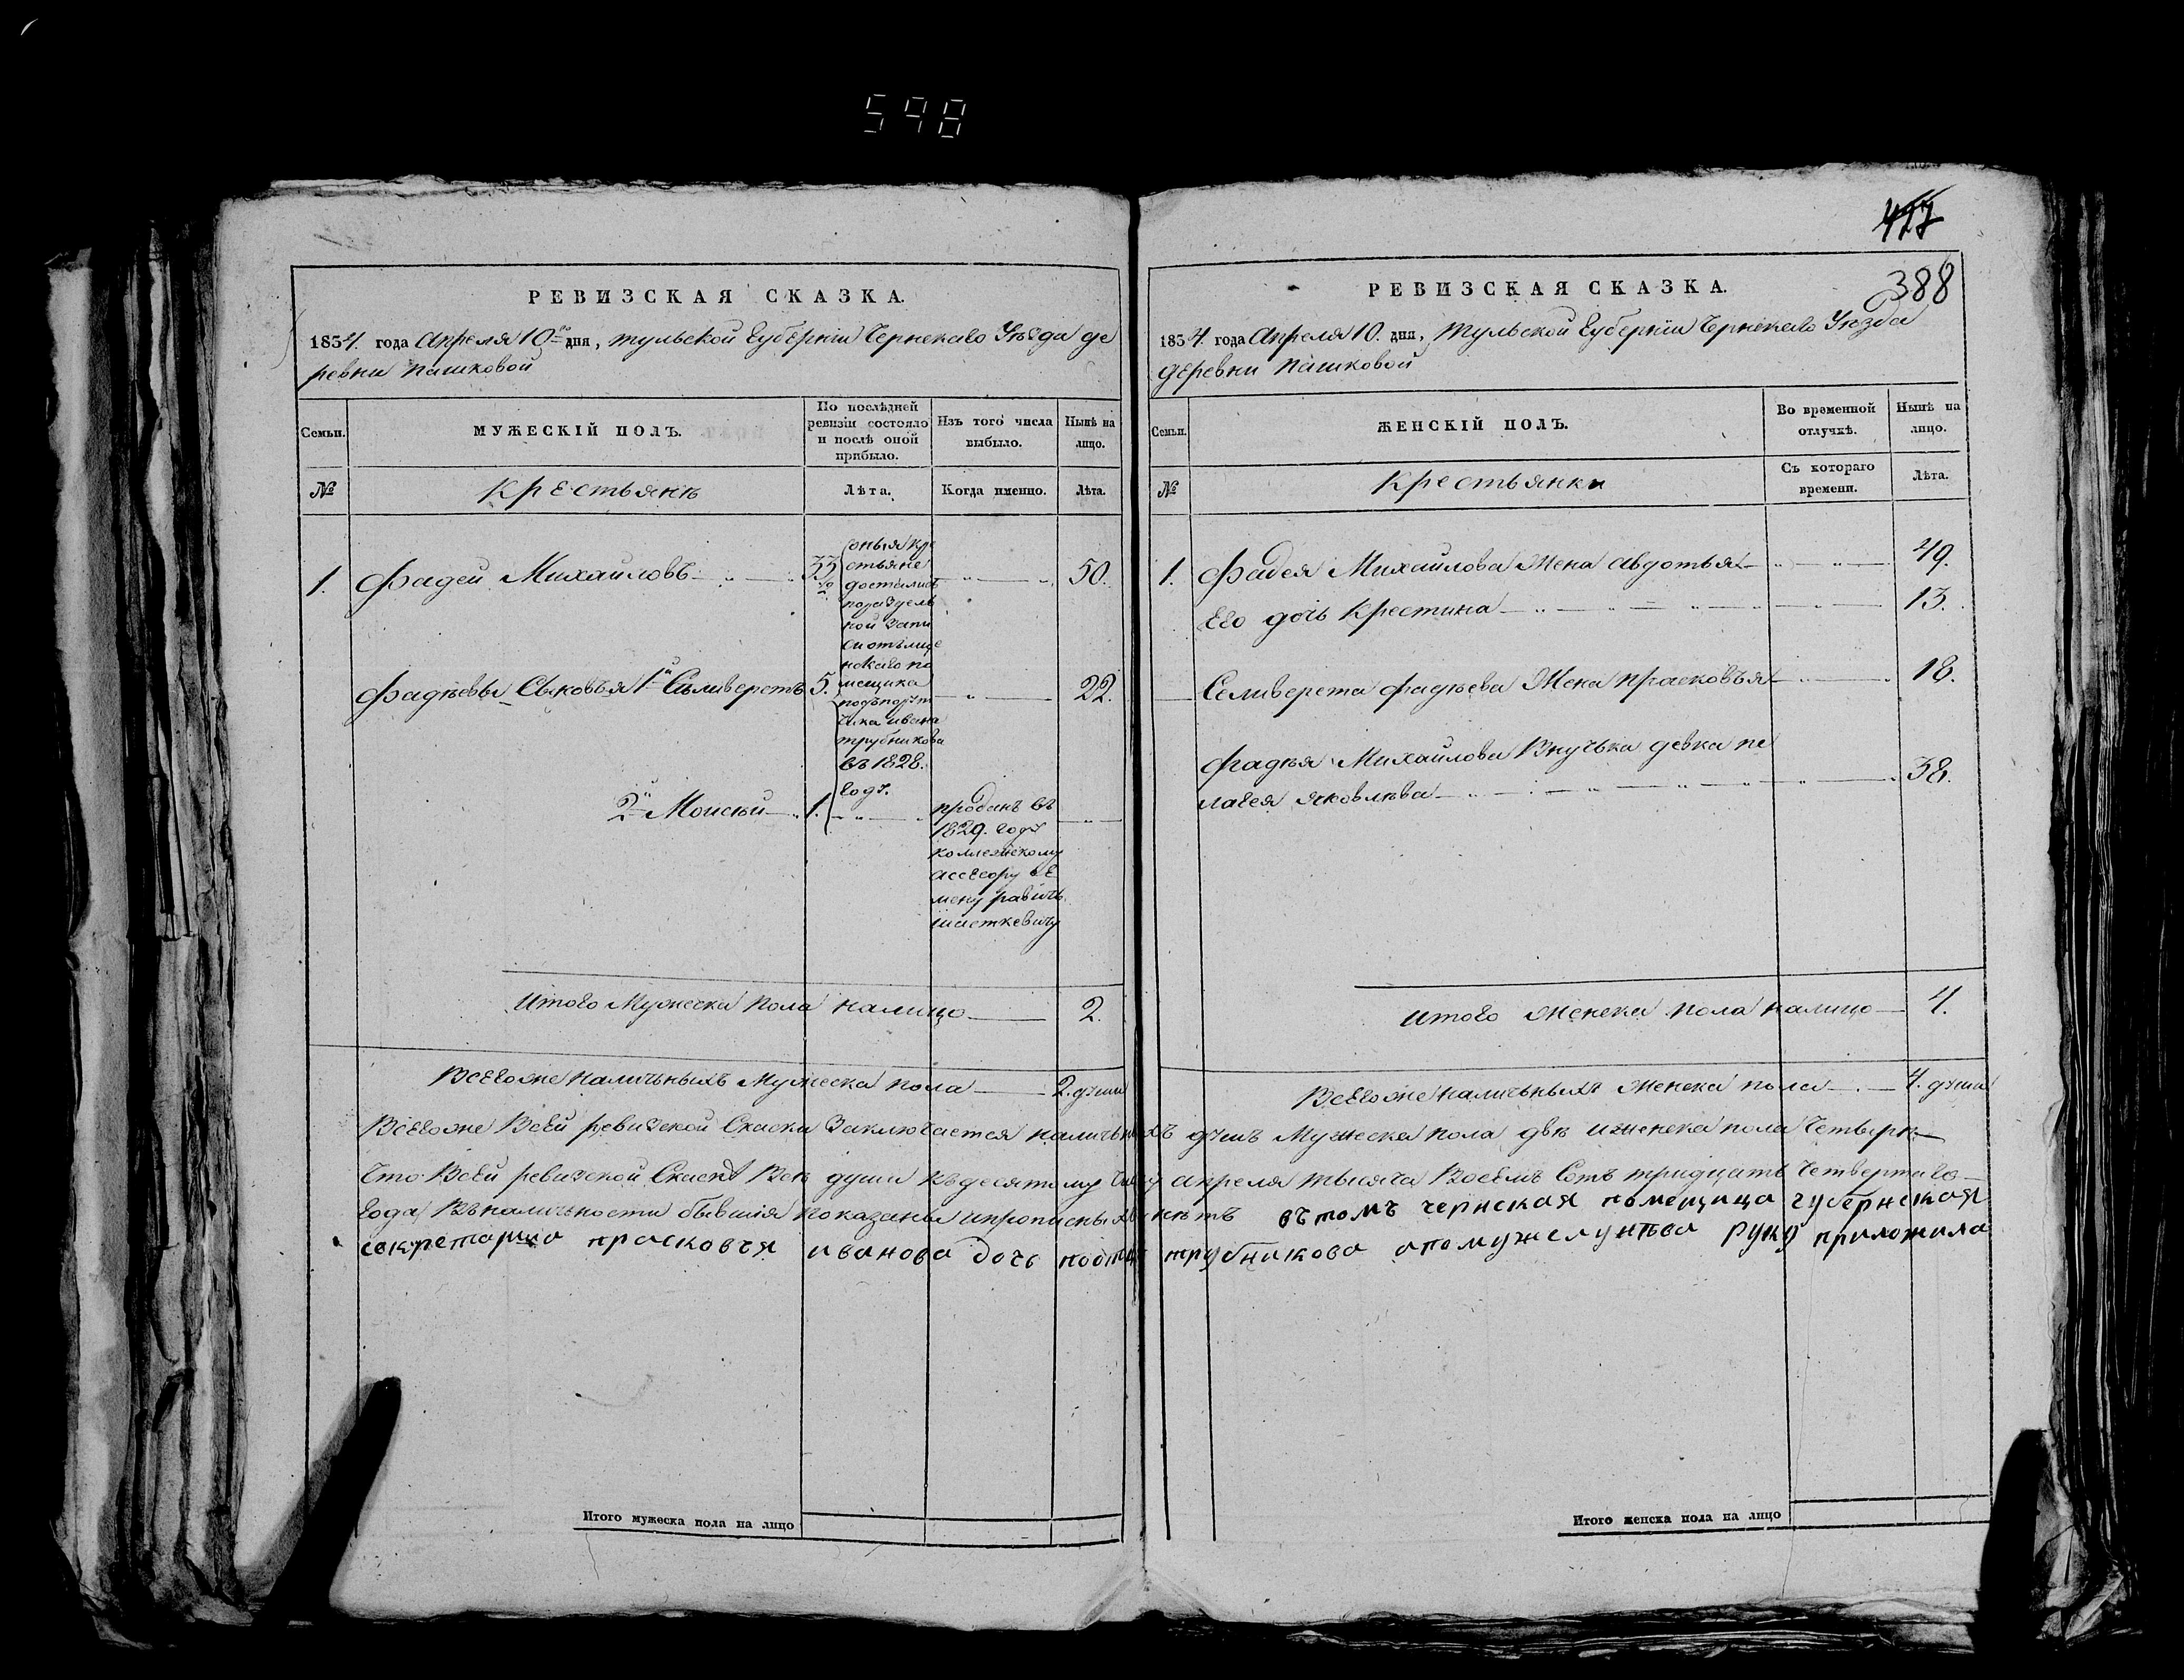 598
477
388
РЕВИЗСКАЯ СКАЗКА.
1834. года Апреля 10го дня, тульской Губерніи Чернскаго Уѣзда де
ревни Пашковой
Семьи.
МУЖЕСКІЙ ПОЛЪ.
По послѣдней ревизіи состояло и послѣ оной прибыло.
Изъ того числа выбыло.
Нынѣ на лицо.
№
Крестьянѣ
Лѣта.
Когда именно.
Лѣта.
1. Фадей Михайловъ 33 50.
оныя кре
стьяне
достались
поразделъ
ной запи
си отъ
нскаго по
мещика
подъпорут
чика ивана
трубникова
въ 1828.
году.
Фадѣевы Сыновья 1й Сѣливерстъ 5. 22.
2й Моисѣй 1.
проданъ въ
1829. году
коллежскому
ассесору сѣ
мену равичъ
шасткевичу
Итого Мужеска Пола налицо 2.
Всего же наличныхъ Мужеска пола 2. души
РЕВИЗСКАЯ СКАЗКА.
1834. года Апреля 10. дня, Тульской Губерніи Чернскаго Уѣзда
деревни Пашковой
Семьи.
ЖЕНСКІЙ ПОЛЪ.
Во временной отлучкѣ.
Нынѣ на лицо.
№
Крестьянки
Съ котораго времени.
Лѣта.
1. Фадея Михайлова Жена Авдотья 49.
Его дочь Крестина 13.
Селиверста Фадѣева Жена Прасковъя 18.
Фадѣя Михайлова Внучька девка пе
лагея Яковлѣва 38.
Итого Женска пола налицо 4.
Всего же наличныхъ Женска пола 4. души
Всего же Всей ревизской Скаски Заключается наличныхъ душъ Мужеска пола двѣ и женска пола Четыри
Что Всей ревизской Скаскѣ Всѣ души Къ десятому Числу апреля тысяча Восемъ Сотъ тридцать Четвертаго
года Въ наличности бывшія показаны и прописныхъ нѣтъ въ томъ чернская помещица губернская
секретарша прасковья иванова дочь трубникова руку приложила
Итого мужеска пола на лицо
Итого женска пола на лицо